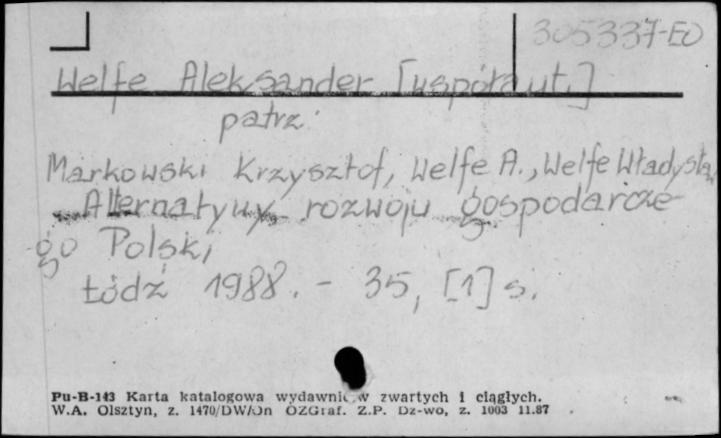 305337-EO
Welfe Aleksander [współaut.]
patrz:
Markowski Krzysztof, Welfe A., Welfe Władysła
Alternatywy rozwoju gospodarcze-
go Polski
Łódź 1988. - 35, [1] s.
Pu-B-143 Karta katalogowa wydawnic w zwartych i ciągłych.
W.A. Olsztyn, z. 1470/DW/On OZGraf. Z.P. Dz-wo, z. 1003 11.87